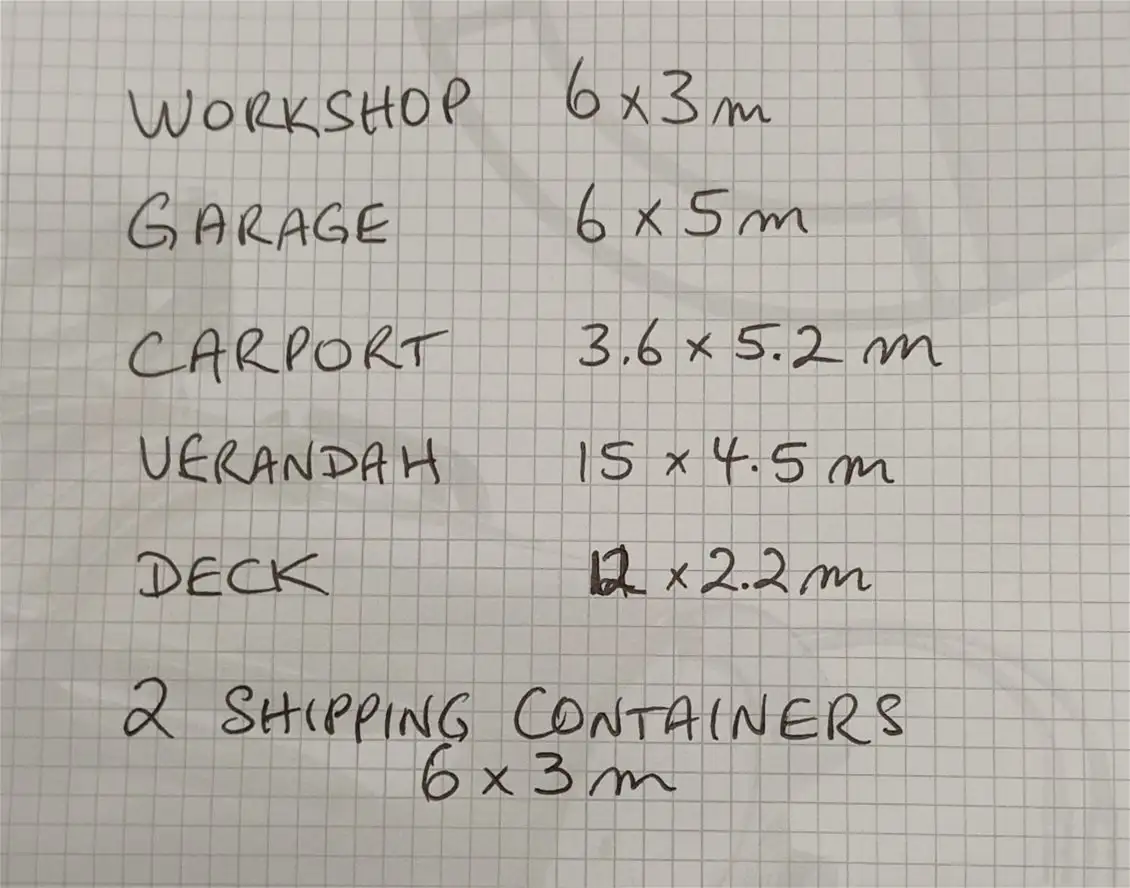 WORKSHOP 6 x 3 m
GARAGE 6 x 5 m
CARPORT 3.6 x 5.2 m
VERANDAH 15 x 4.5 m
DECK 12 x 2.2 m
2 SHIPPING CONTAINERS
6 x 3 m